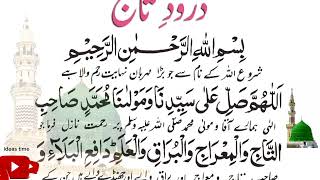 درود تاج
بِسْمِ اللهِ الرَّحْمٰنِ الرَّحِيْمِ
شروع اللہ کے نام سے جو بڑا مہربان نہایت رحم والا ہے
اَللّٰهُمَّ صَلِّ عَلٰى سَيِّدِنَا وَمَوْلٰنَا مُحَمَّدٍ صَاحِبِ
الٰہی ہمارے آقا و مولیٰ محمد صلی اللہ علیہ وسلم پر رحمت نازل فرما جو
التَّاجِ وَالْمِعْرَاجِ وَالْبُرَاقِ وَالْعَلَمِ دَافِعِ الْبَلَآءِ وَ
صاحب تاج و معراج اور براق والے اور جھنڈے والے ہیں جن کے
Ideas time